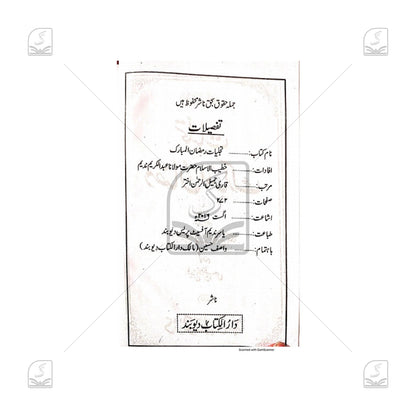 جملہ حقوق بحق ناشر محفوظ ہیں
تفصیلات
نام کتاب: ........ تجلیات رمضان المبارک
افادات: ........ خطیب الاسلام حضرت مولانا عبدالکریم ندیم
مرتب: ........ قاری جمیل الرحمن اختر
صفحات: ........ ۲۷۲
اشاعت: ........ اگست ۲۰۱۶ء
طباعت: ........ یاسر ندیم آفسیٹ پریس دیوبند
باہتمام: ........ واصف حسین (مالک دارالکتاب دیوبند)
ناشر
دارالکتاب دیوبند
Scanned with CamScanner